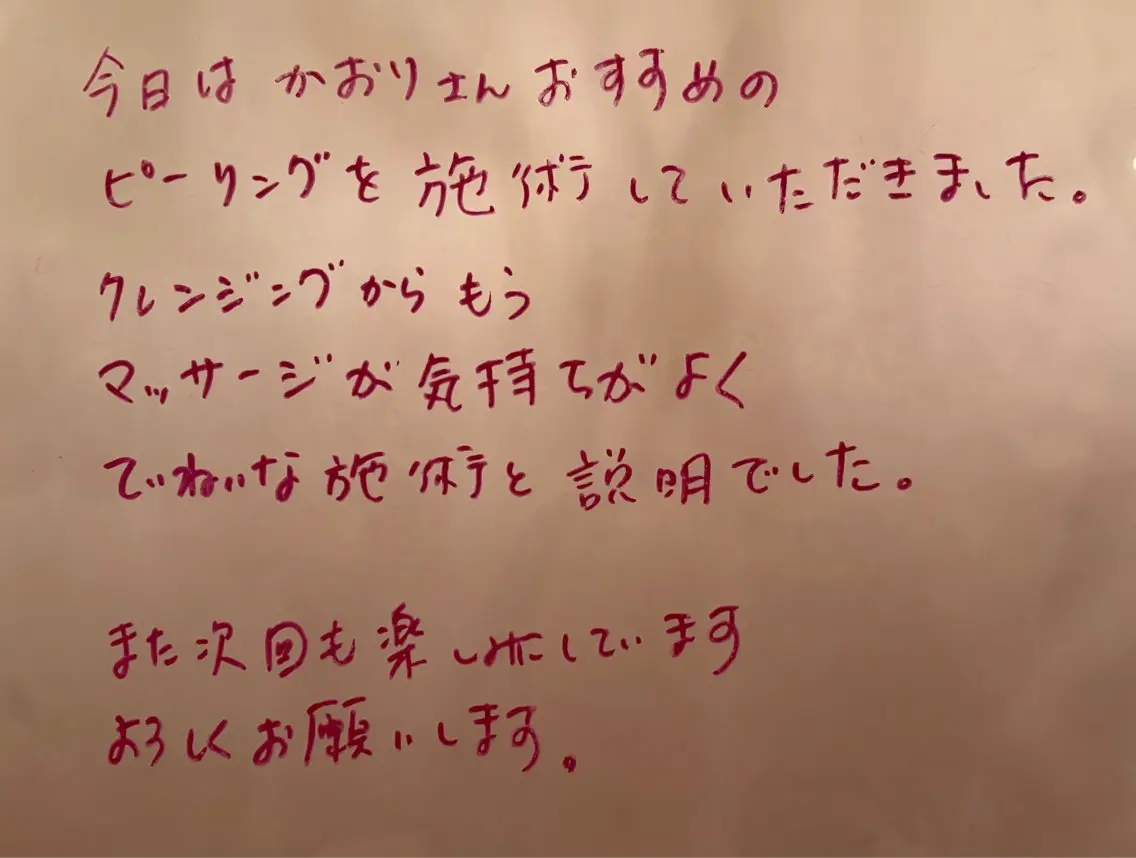 今日は かおりさん おすすめの
ピーリングを 施術していただきました。
クレンジングから もう
マッサージが 気持ちがよく
ていねいな 施術と 説明でした。
また次回も楽しみにしています
よろしくお願いします。